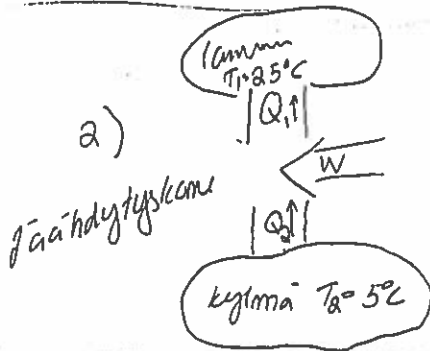 lämmin
T₁=25°C
Q₁↑
2)
W
Jäähdytyskone
Q₂↑
kylmä T₂= 5°C